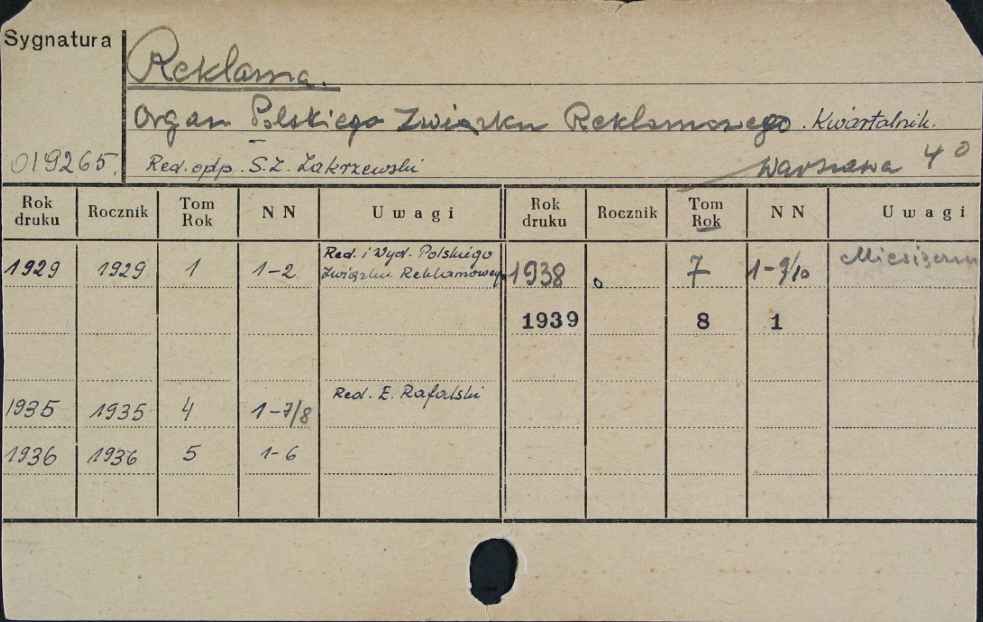 Sygnatura
Reklama.
Organ Polskiego Związku Reklamowego. Kwartalnik.
019265. Red. opp. S.Z. Zakrzewski Warszawa 4°
Rok druku Rocznik Tom Rok N N Uwagi Rok druku Rocznik Tom Rok N N Uwagi
1929 1929 1 1-2 Red. i Wyd. Polskiego Związku Reklamowego 1938 7 1-9/10
1939 8 1
1935 1935 4 1-7/8 Red. E. Rafalski
1936 1936 5 1-6